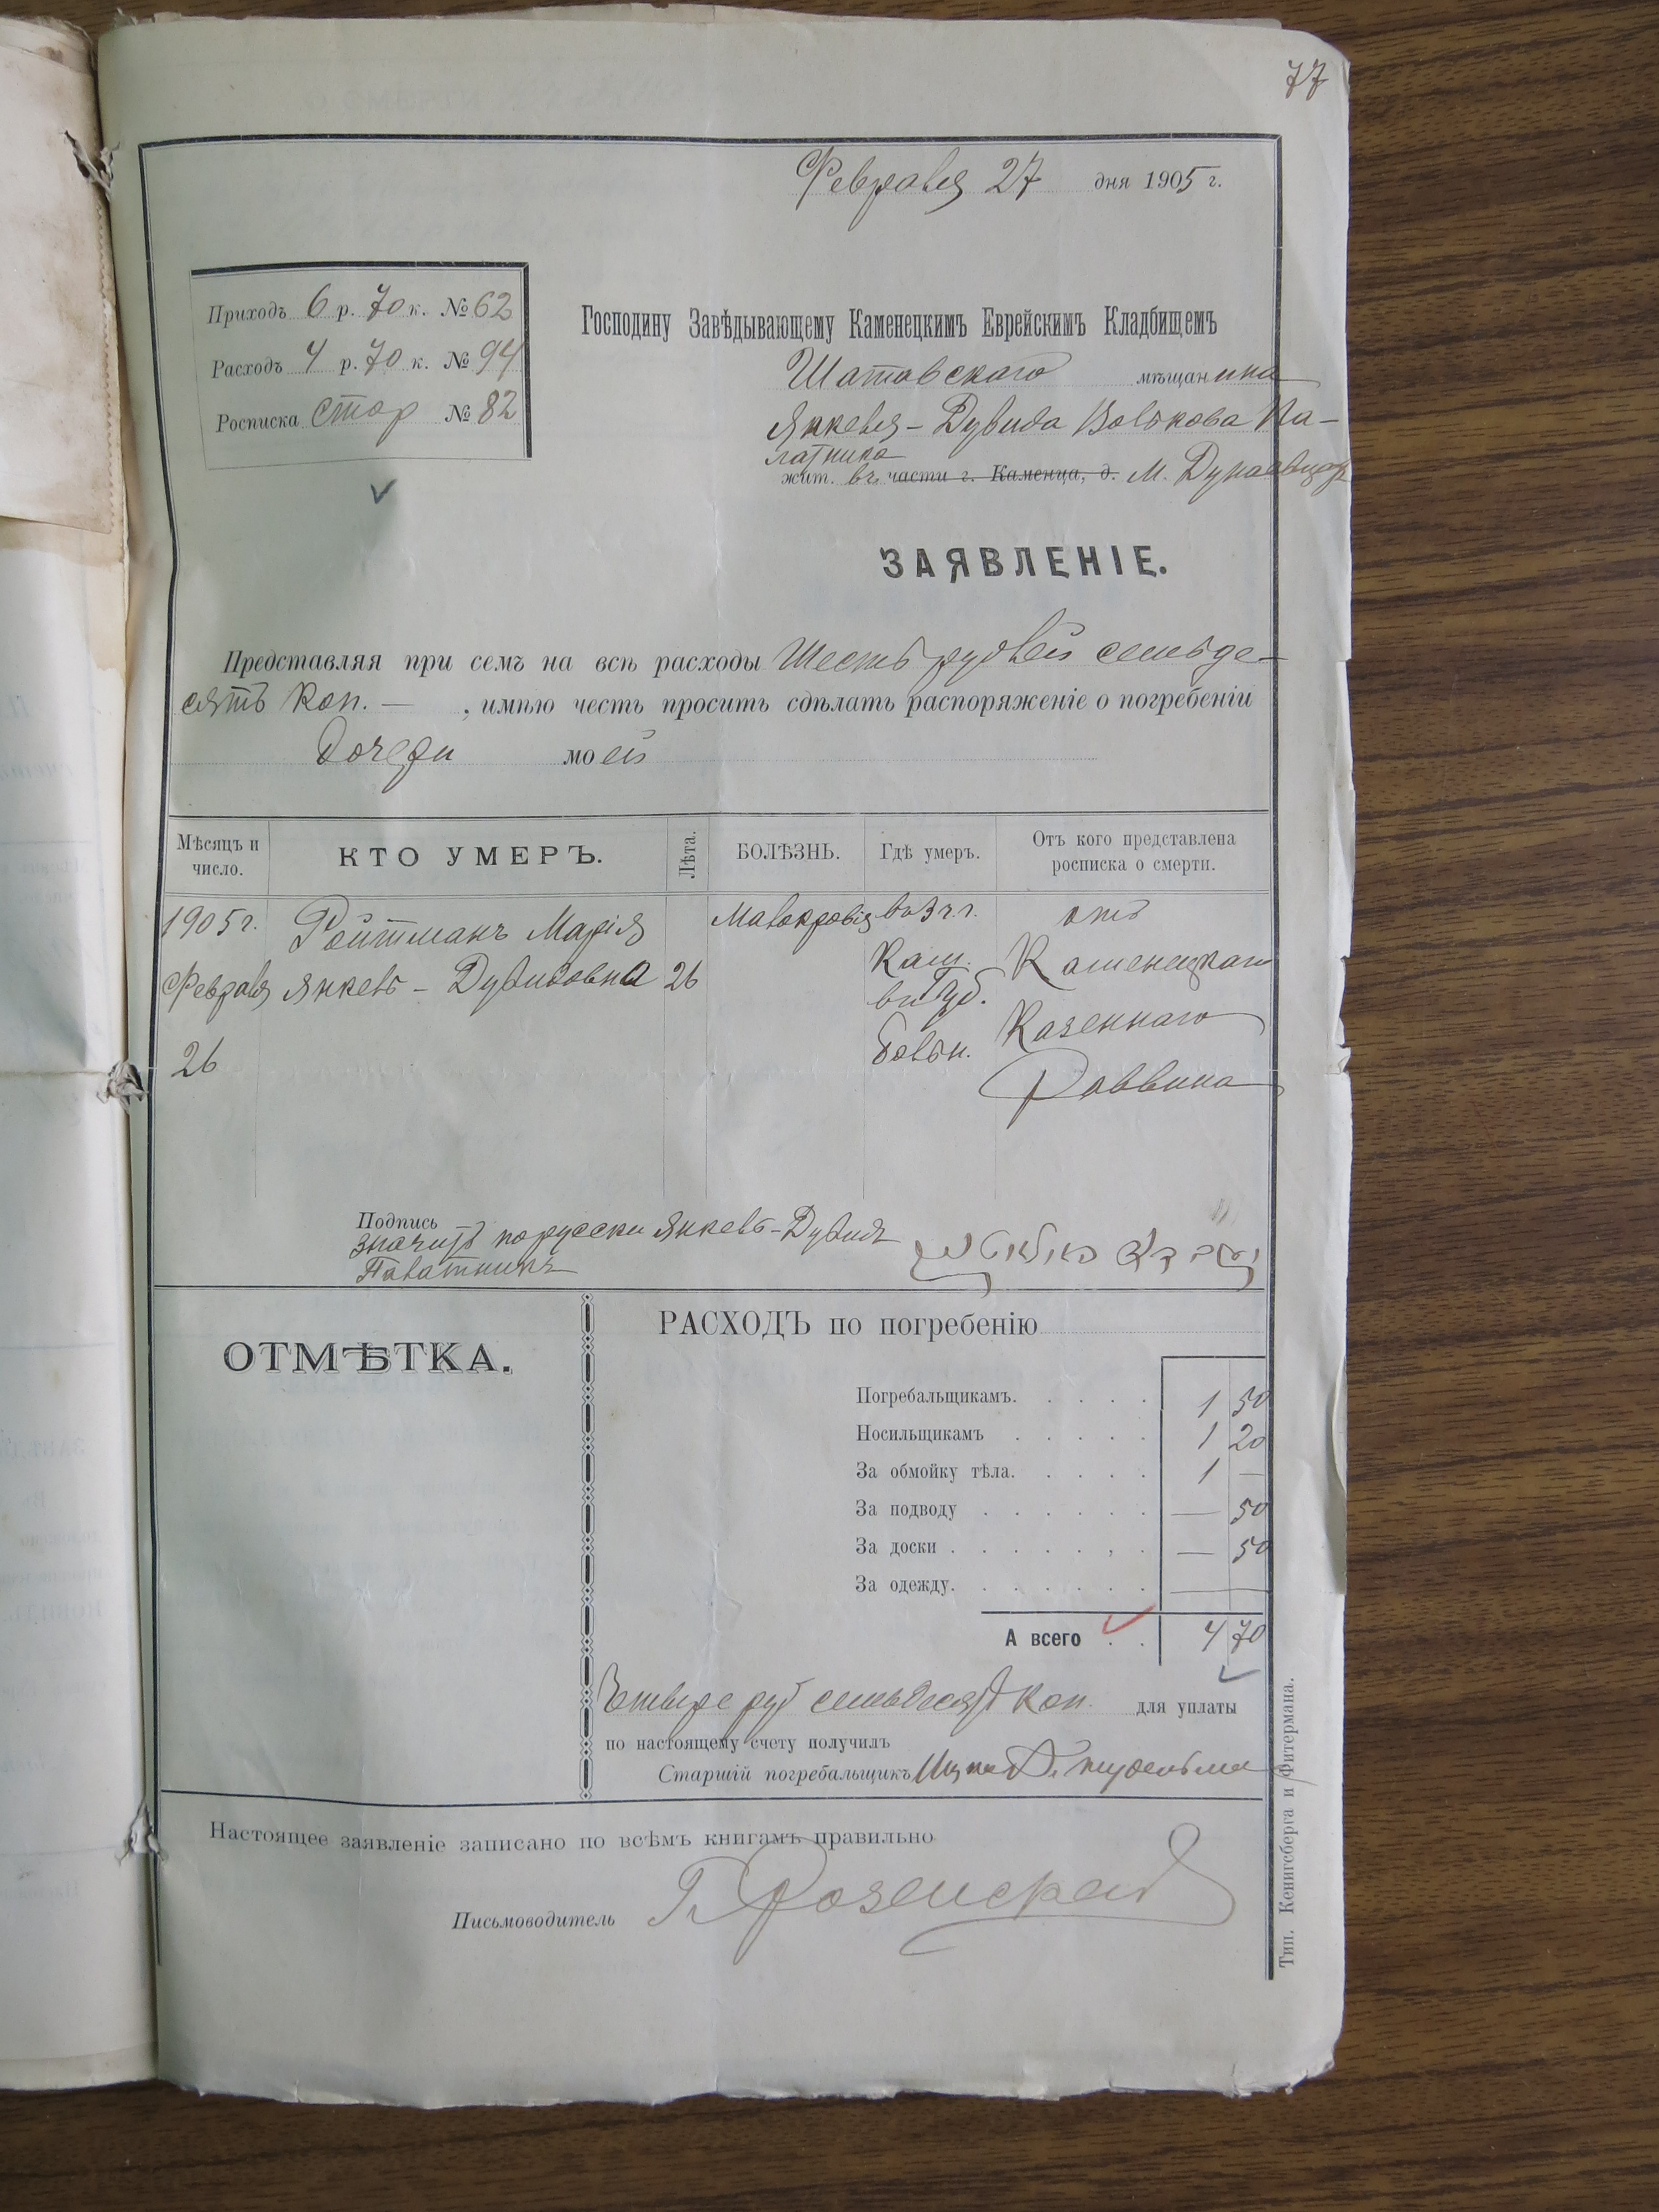 77
Февраля 27 дня 1905 г.
Приходъ 6 р. 70 к. № 62
Расходъ 4 р. 70 к. № 94
Росписка стор № 82
Господину Завѣдывающему Каменецкимъ Еврейскимъ Кладбищемъ
Шатавскаго мѣщанина
Янкеля-Дувида Волькова Па-
латника
жит. въ части г. Каменца, д. М. Дунаевцахъ
ЗАЯВЛЕНІЕ.
Представляя при семъ на всѣ расходы Шесть рублей семьде-
сятъ коп. — , имѣю честь просить сдѣлать распоряженіе о погребеніи
дочери моей
Мѣсяцъ и число. КТО УМЕРЪ. Лѣта. БОЛѢЗНЬ. Гдѣ умеръ. Отъ кого представлена росписка о смерти.
1905 г. Ройтманъ Марія Малокровія въ 3 ч. г. отъ
Февраля Янкель-Дувидовна 26 Кам. Каменецкаго
26 въ Губ. Казеннаго
больн. Раввина
Подпись
значитъ по русски Янкель-Дувидъ
Палатникъ
ОТМѢТКА.
РАСХОДЪ по погребенію
Погребальщикамъ. . . . . 1 50
Носильщикамъ . . . . . 1 20
За обмойку тѣла. . . . . 1 —
За подводу . . . . . . — 50
За доски . . . . . , . — 50
За одежду. . . . . . . — —
А всего . . 4 70
Четыре руб семьдесят коп. для уплаты
по настоящему счету получилъ
Старшій погребальщикъ
Настоящее заявленіе записано по всѣмъ книгамъ правильно
Письмоводитель
Тип. Кенигсберга и Фитермана.